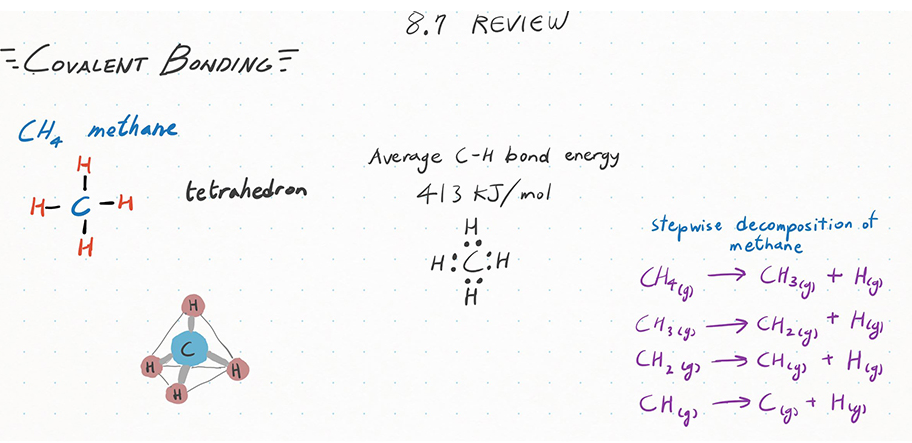 8.7 REVIEW
=COVALENT BONDING=
CH₄ methane
H
H–C–H
H
tetrahedron
Average C–H bond energy
413 kJ/mol
H
H:C:H
H
H
C
H
H
H
stepwise decomposition of
methane
CH₄(g) → CH₃(g) + H(g)
CH₃(g) → CH₂(g) + H(g)
CH₂(g) → CH(g) + H(g)
CH(g) → C(g) + H(g)